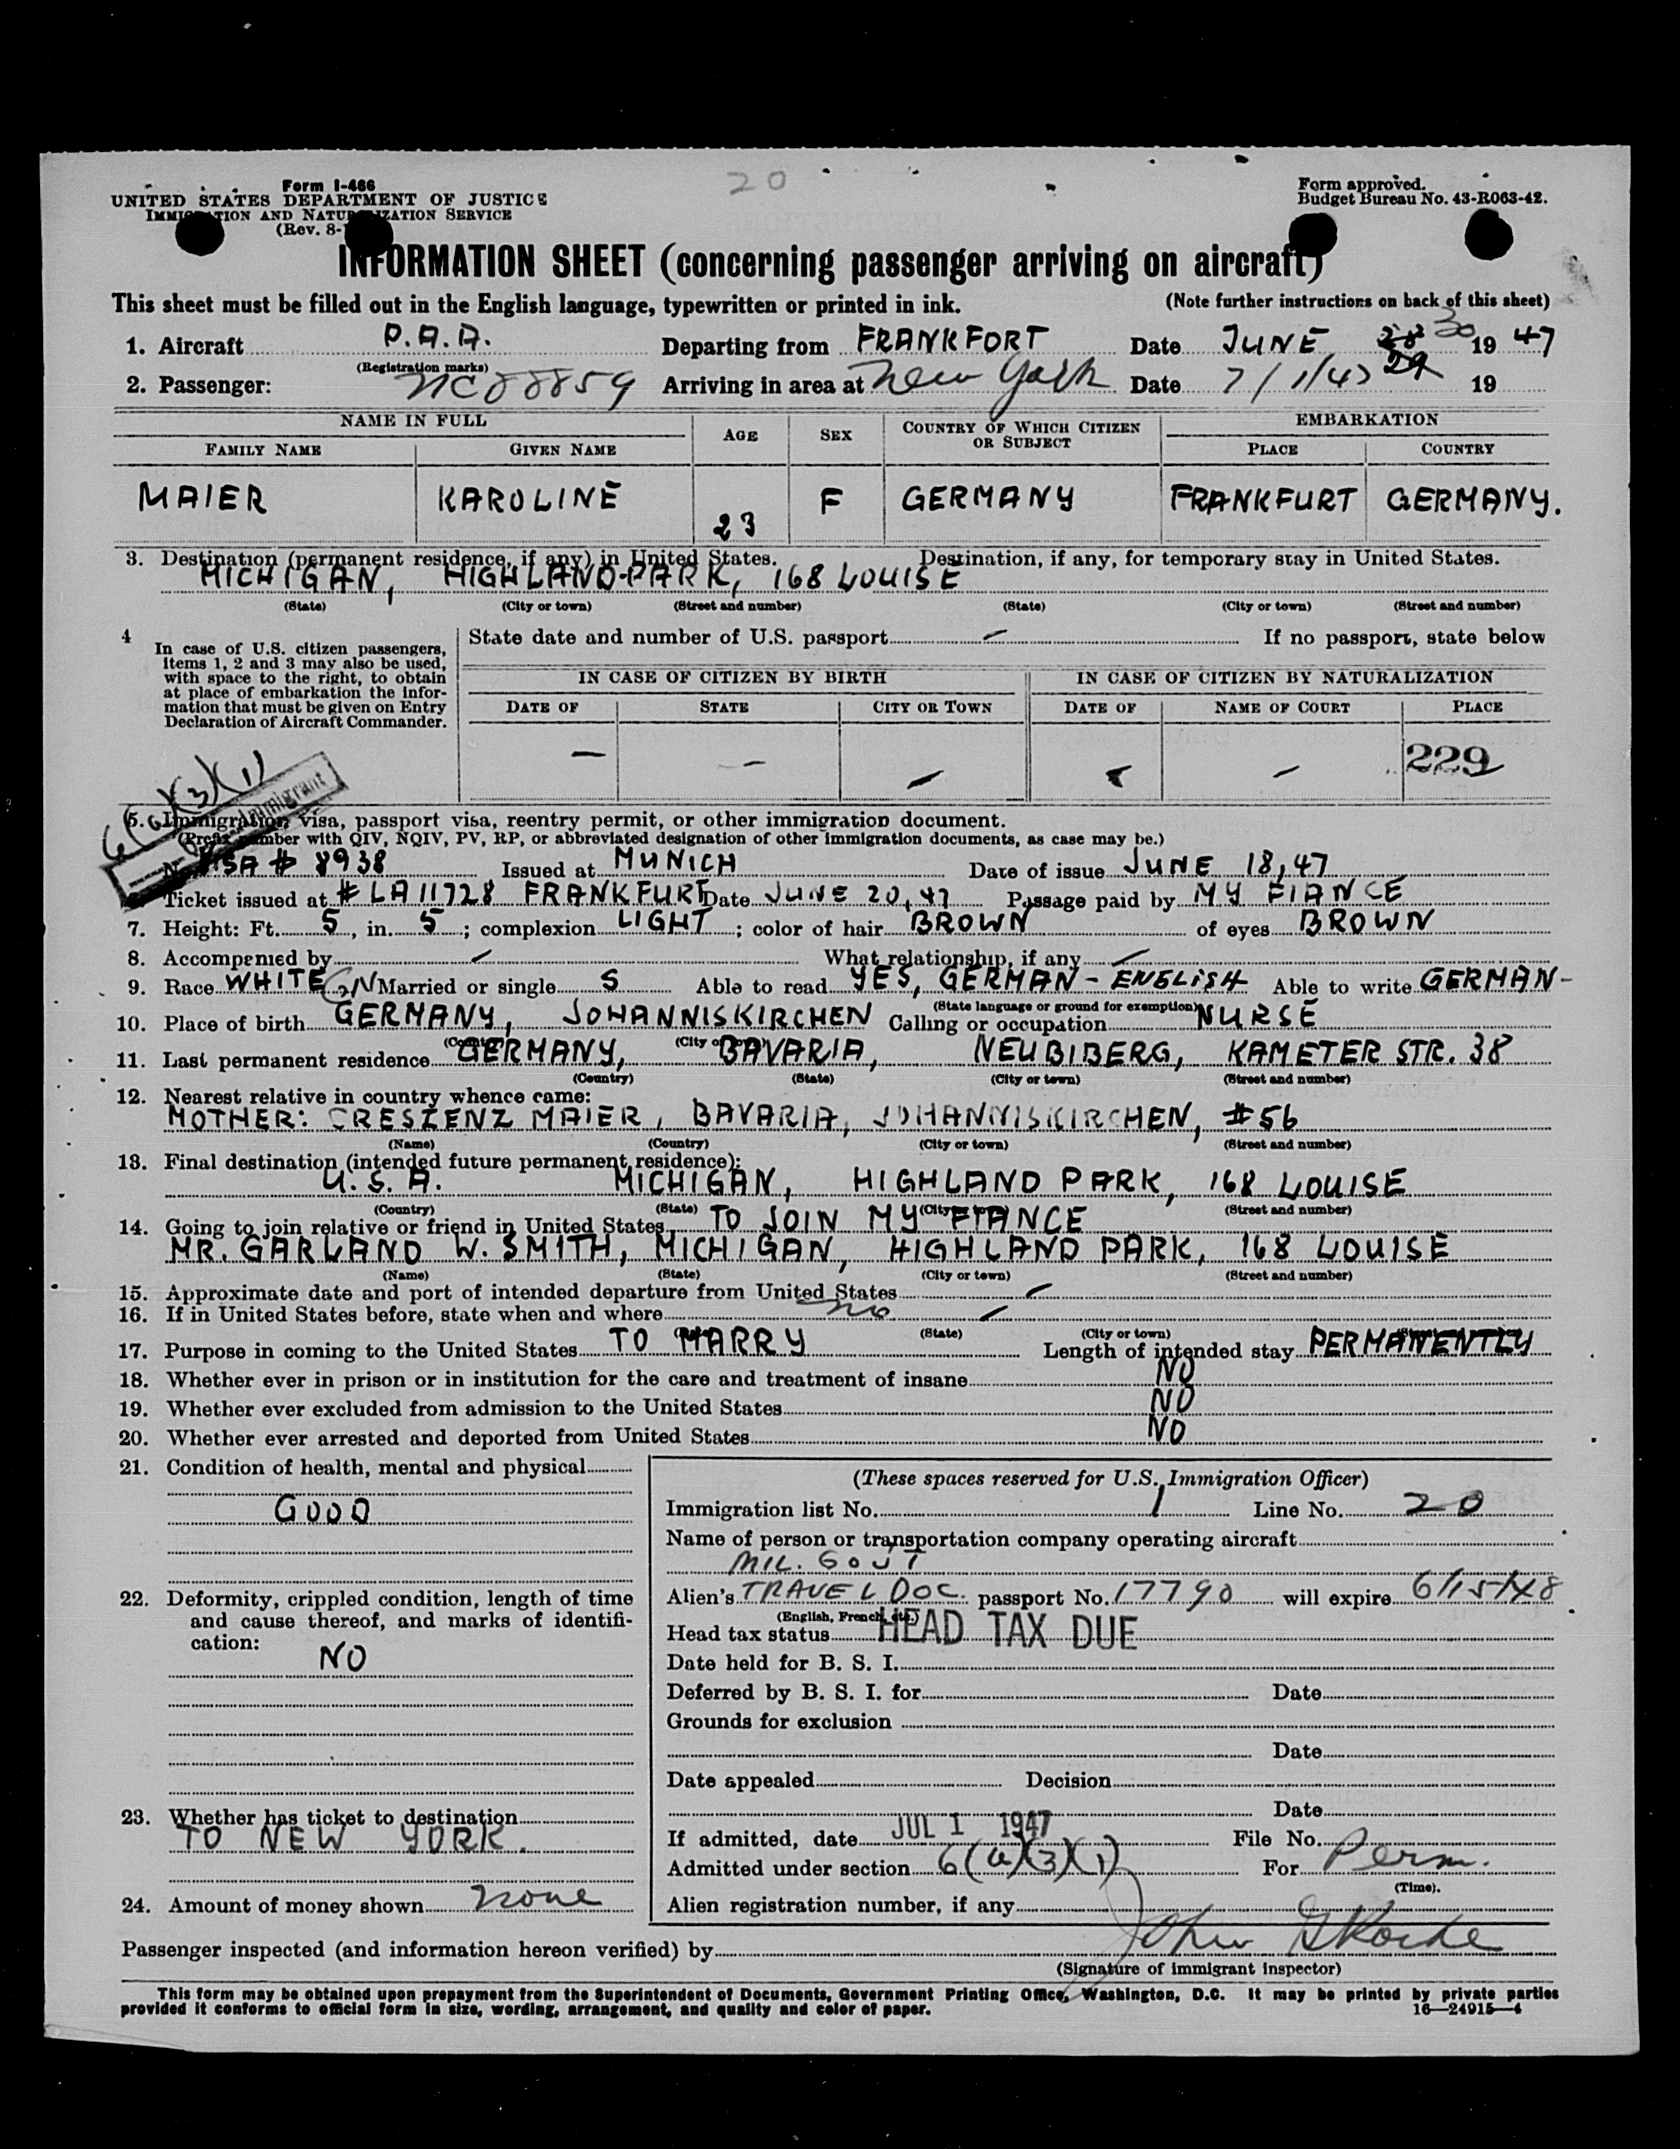 20
Form I-466
UNITED STATES DEPARTMENT OF JUSTICE
IMMIGRATION AND NATURALIZATION SERVICE
(Rev. 8-
Form approved.
Budget Bureau No. 43-R063-42.
INFORMATION SHEET (concerning passenger arriving on aircraft)
This sheet must be filled out in the English language, typewritten or printed in ink. (Note further instructions on back of this sheet)
1. Aircraft P.A.A. Departing from FRANKFORT Date JUNE 28 30 1947
(Registration marks)
2. Passenger: NC88859 Arriving in area at New York Date 7/1/47 29 19
NAME IN FULL AGE SEX COUNTRY OF WHICH CITIZEN OR SUBJECT EMBARKATION
FAMILY NAME GIVEN NAME PLACE COUNTRY
MAIER KAROLINE 23 F GERMANY FRANKFURT GERMANY.
3. Destination (permanent residence, if any) in United States. Destination, if any, for temporary stay in United States.
MICHIGAN, HIGHLAND-PARK, 168 LOUISE
(State) (City or town) (Street and number) (State) (City or town) (Street and number)
4 In case of U.S. citizen passengers, items 1, 2 and 3 may also be used, with space to the right, to obtain at place of embarkation the information that must be given on Entry Declaration of Aircraft Commander.
State date and number of U.S. passport - If no passport, state below
IN CASE OF CITIZEN BY BIRTH IN CASE OF CITIZEN BY NATURALIZATION
DATE OF STATE CITY OR TOWN DATE OF NAME OF COURT PLACE
229
6(a)(3)(1)
Immigrant
5. Immigration visa, passport visa, reentry permit, or other immigration document.
(Prefix number with QIV, NQIV, PV, RP, or abbreviated designation of other immigration documents, as case may be.)
No. VISA # 8938 Issued at MUNICH Date of issue JUNE 18,47
6. Ticket issued at # LA 11728 FRANKFURT Date JUNE 20,47 Passage paid by MY FIANCE
7. Height: Ft. 5, in. 5; complexion LIGHT; color of hair BROWN of eyes BROWN
8. Accompanied by What relationship, if any
9. Race WHITE Married or single S Able to read YES, GERMAN - ENGLISH Able to write GERMAN-
(State language or ground for exemption)
10. Place of birth GERMANY, JOHANNISKIRCHEN Calling or occupation NURSE
(Country) (City or town)
11. Last permanent residence GERMANY, BAVARIA, NEUBIBERG, KAMETER STR. 38
(Country) (State) (City or town) (Street and number)
12. Nearest relative in country whence came:
MOTHER: CRESZENZ MAIER, BAVARIA, JOHANNISKIRCHEN, #56
(Name) (Country) (City or town) (Street and number)
13. Final destination (intended future permanent residence):
U.S.A. MICHIGAN, HIGHLAND PARK, 168 LOUISE
(Country) (State) (City or town) (Street and number)
14. Going to join relative or friend in United States TO JOIN MY FIANCE
MR. GARLAND W. SMITH, MICHIGAN, HIGHLAND PARK, 168 LOUISE
(Name) (State) (City or town) (Street and number)
15. Approximate date and port of intended departure from United States
16. If in United States before, state when and where no
(State) (City or town)
17. Purpose in coming to the United States TO MARRY Length of intended stay PERMANENTLY
18. Whether ever in prison or in institution for the care and treatment of insane NO
19. Whether ever excluded from admission to the United States NO
20. Whether ever arrested and deported from United States NO
21. Condition of health, mental and physical
GOOD
22. Deformity, crippled condition, length of time and cause thereof, and marks of identification:
NO
23. Whether has ticket to destination
TO NEW YORK.
24. Amount of money shown none
(These spaces reserved for U.S. Immigration Officer)
Immigration list No. 1 Line No. 20
Name of person or transportation company operating aircraft
MIL. GOVT
Alien's TRAVEL DOC. passport No. 17790 will expire 6/15/48
(English, French, etc.)
Head tax status HEAD TAX DUE
Date held for B. S. I.
Deferred by B. S. I. for Date
Grounds for exclusion
Date
Date appealed Decision
Date
If admitted, date JUL 1 1947 File No.
Admitted under section 6(a)(3)(1) For Perm.
(Time).
Alien registration number, if any
Passenger inspected (and information hereon verified) by John
(Signature of immigrant inspector)
This form may be obtained upon prepayment from the Superintendent of Documents, Government Printing Office, Washington, D.C. It may be printed by private parties
provided it conforms to official form in size, wording, arrangement, and quality and color of paper. 16—24915—4